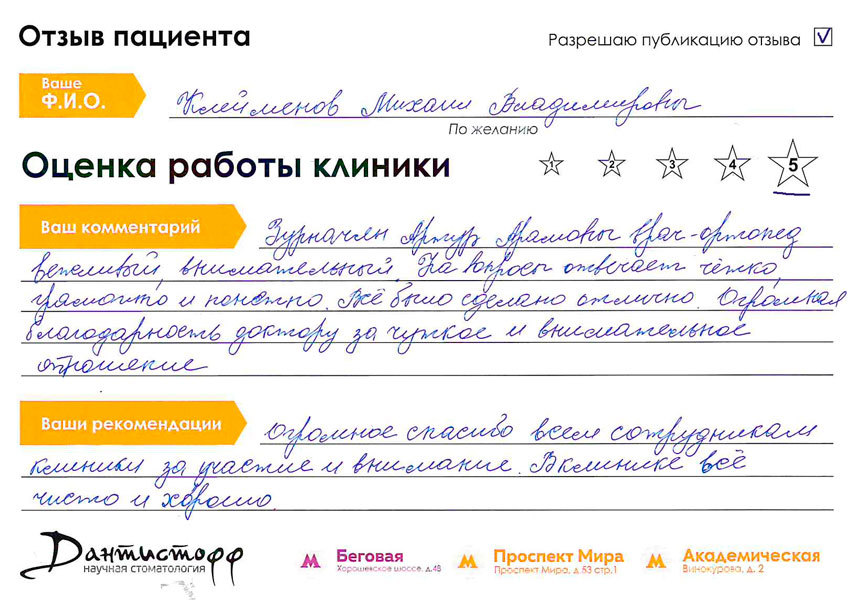 Отзыв пациента
Разрешаю публикацию отзыва
Ваше
Ф.И.О.
Клейменов Михаил Владимировы
По желанию
Оценка работы клиники
1 2 3 4 5
Ваш комментарий
Зурначян Артур Арамовы врач-ортопед
вежливый, внимательный. На вопросы отвечает чётко,
грамотно и понятно. Всё было сделано отлично. Огромная
благодарность доктору за чуткое и внимательное
отношение
Ваши рекомендации
Огромное спасибо всем сотрудникам
клиники за участие и внимание. В клинике всё
чисто и хорошо.
Дантистофф
научная стоматология
Беговая
Хорошевское шоссе, д.48
Проспект Мира
Проспект Мира, д 53 стр.1
Академическая
Винокурова, д. 2